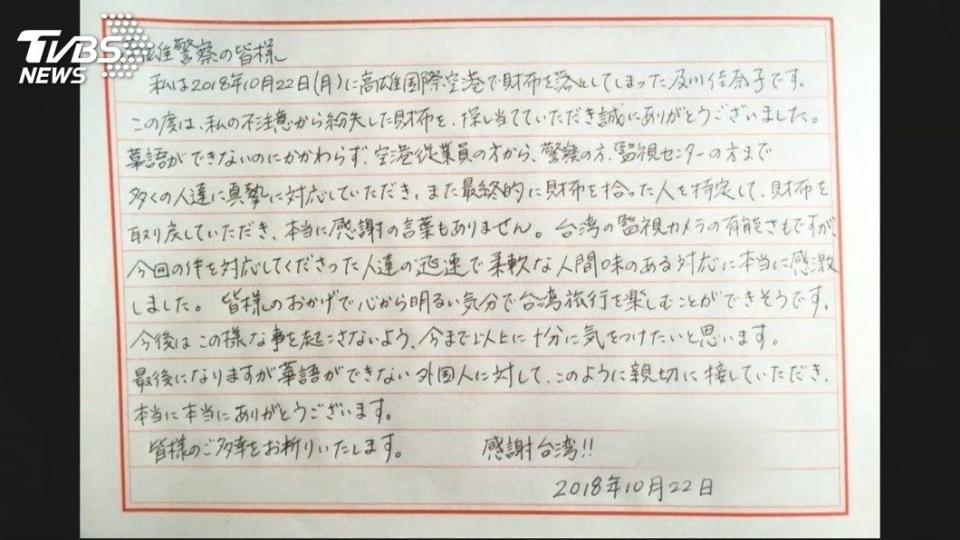 TVBS
NEWS
雄警察の皆様
私は2018年10月22日(月)に高雄国際空港で財布を落としてしまった及川佳奈子です。
この度は、私の不注意から紛失した財布を、探し当てていただき誠にありがとうございました。
華語ができないのにかかわらず、空港従業員の方から、警察の方、監視センターの方まで
多くの人達に真摯に対応していただき、また最終的に財布を拾った人を特定して、財布を
取り戻していただき、本当に感謝の言葉もありません。台湾の監視カメラの有能さもですが、
今回の件を対応してくださった人達の迅速で柔軟な人間味のある対応に本当に感激
しました。皆様のおかげで心から明るい気分で台湾旅行を楽しむことができそうです。
今後はこの様な事を起こさないよう、今まで以上に十分に気をつけたいと思います。
最後になりますが華語ができない外国人に対して、このように親切に接していただき、
本当に本当にありがとうございます。
皆様のご多幸をお祈りいたします。 感謝台湾!!
2018年10月22日